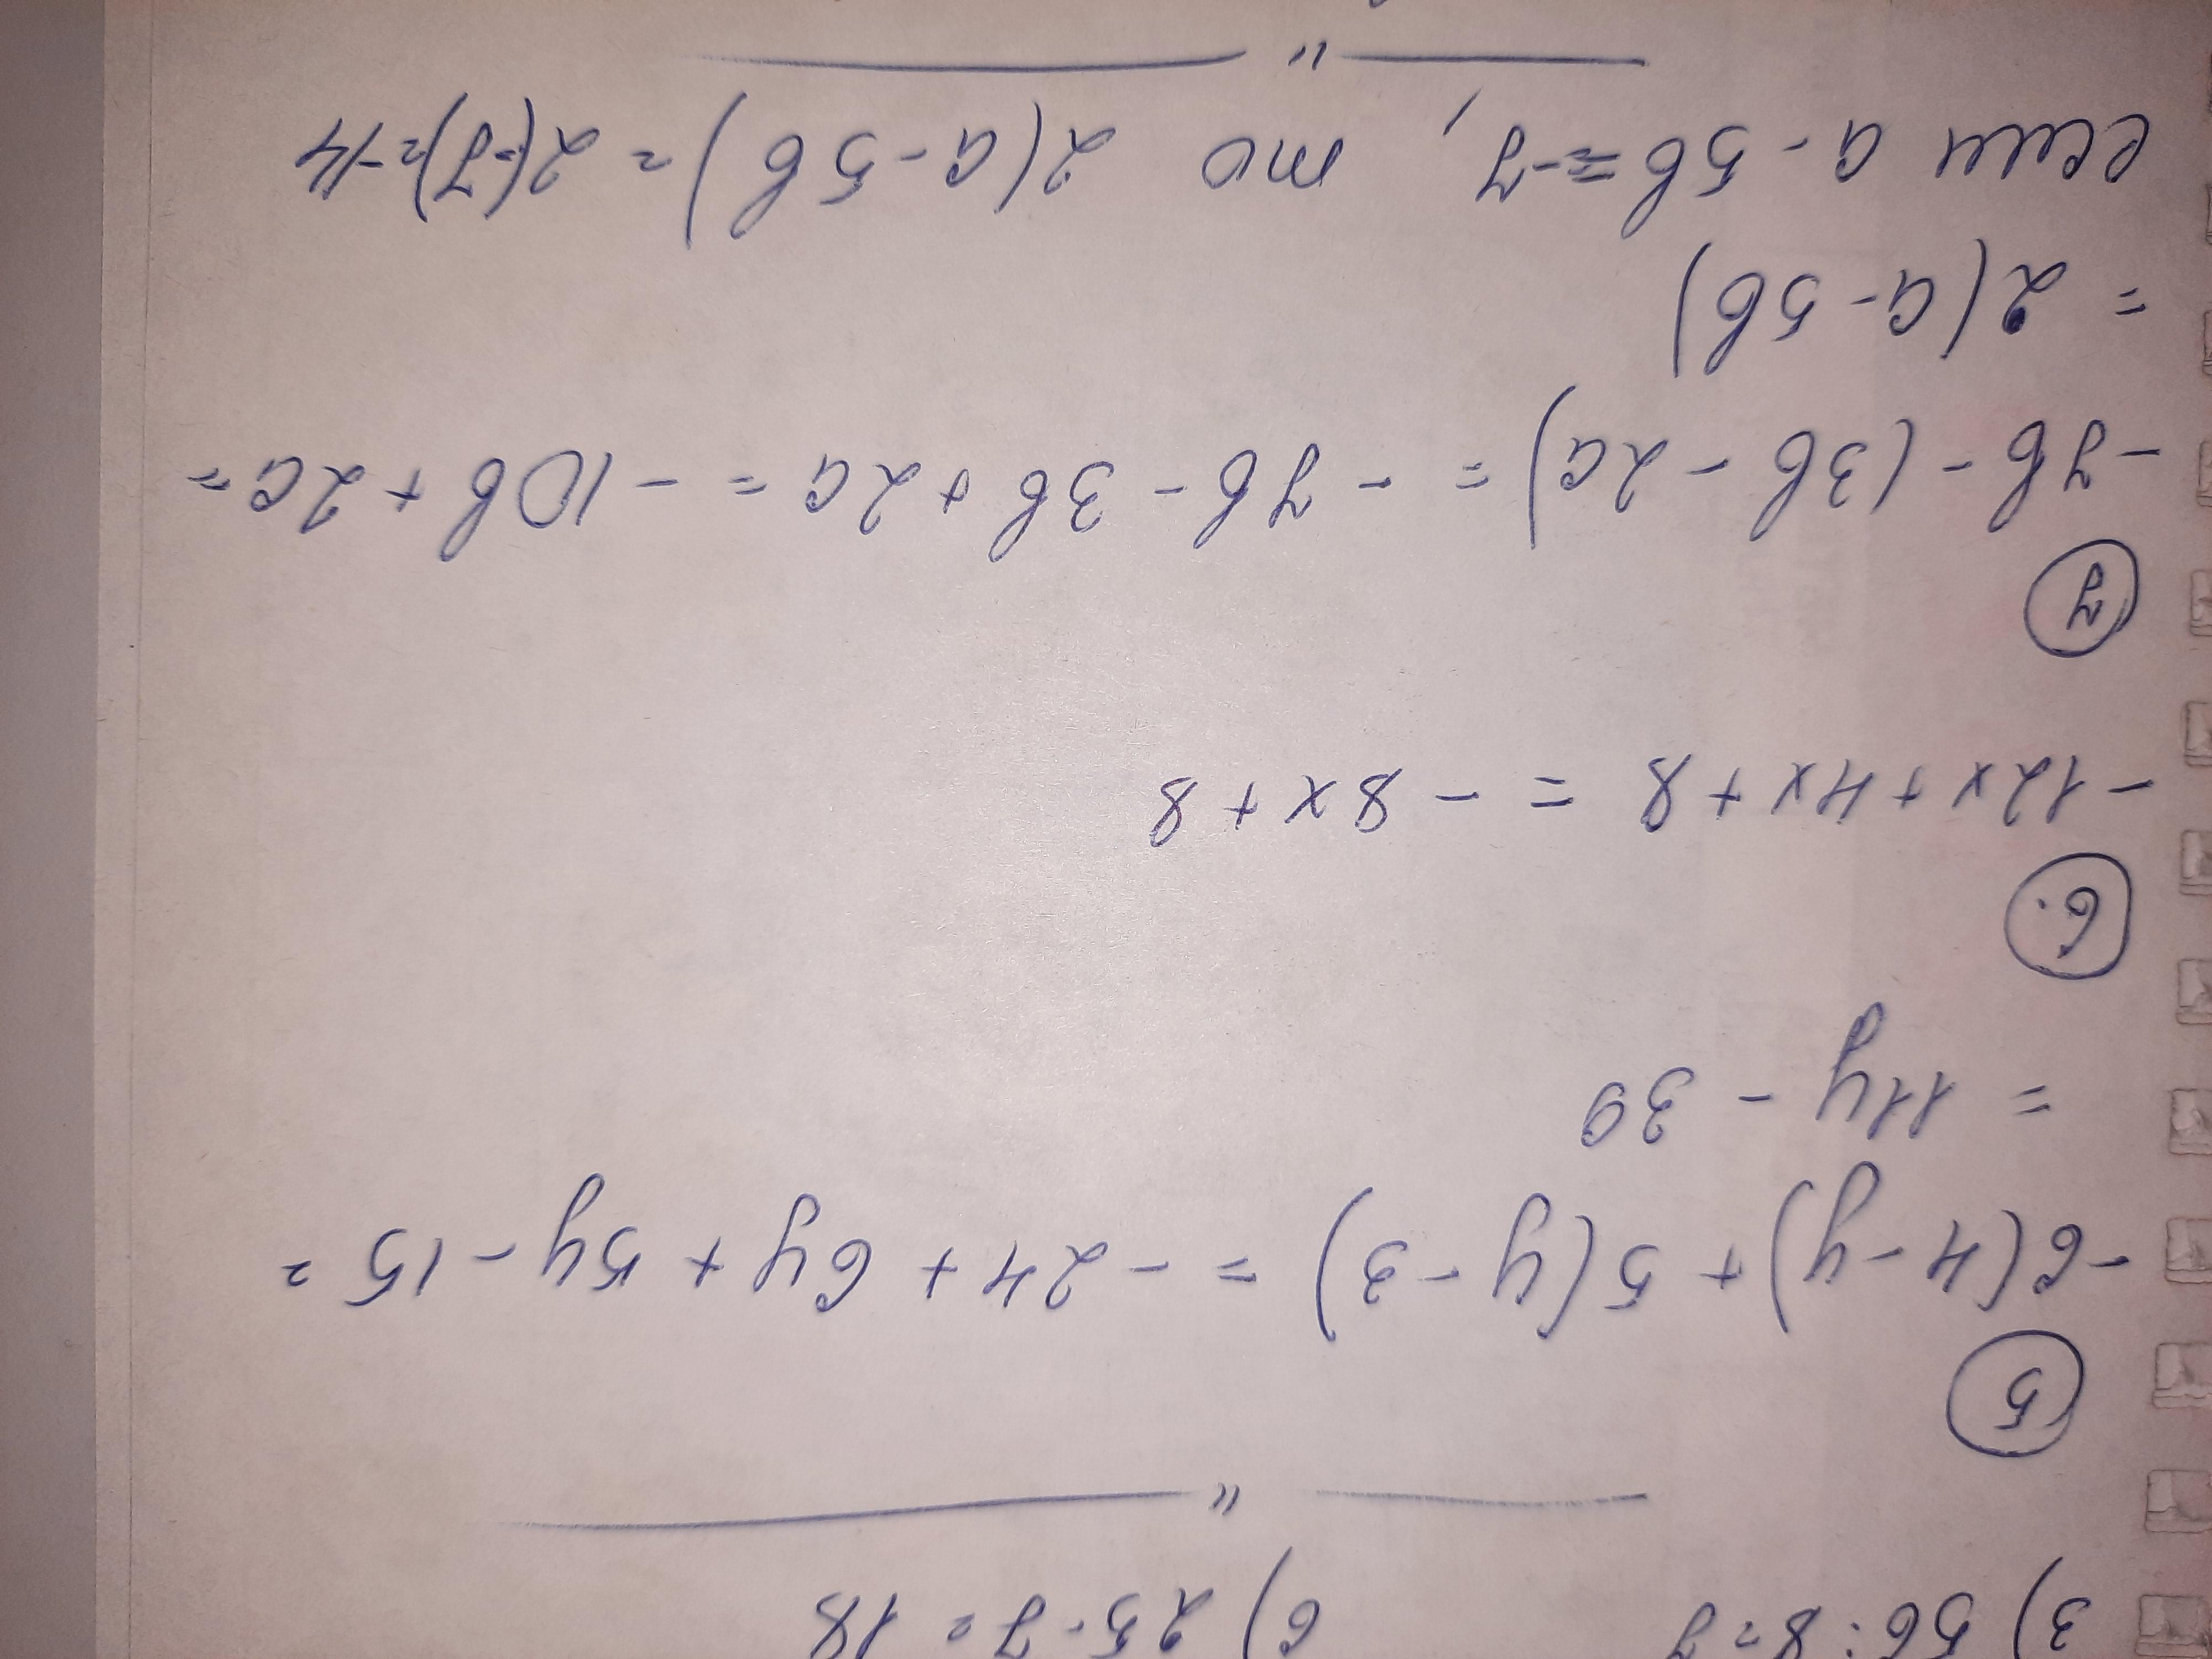 3) 56 : 8 = 7 6) 25 - 7 = 18
— " —
5
-6(4-y) + 5(y-3) = -24 + 6y + 5y - 15 =
= 11y - 39
6.
-12x + 4x + 8 = -8x + 8
7
-7b - (3b - 2a) = -7b - 3b + 2a = -10b + 2a =
= 2(a - 5b)
если a - 5b = -7, то 2(a - 5b) = 2(-7) = -14
— " —